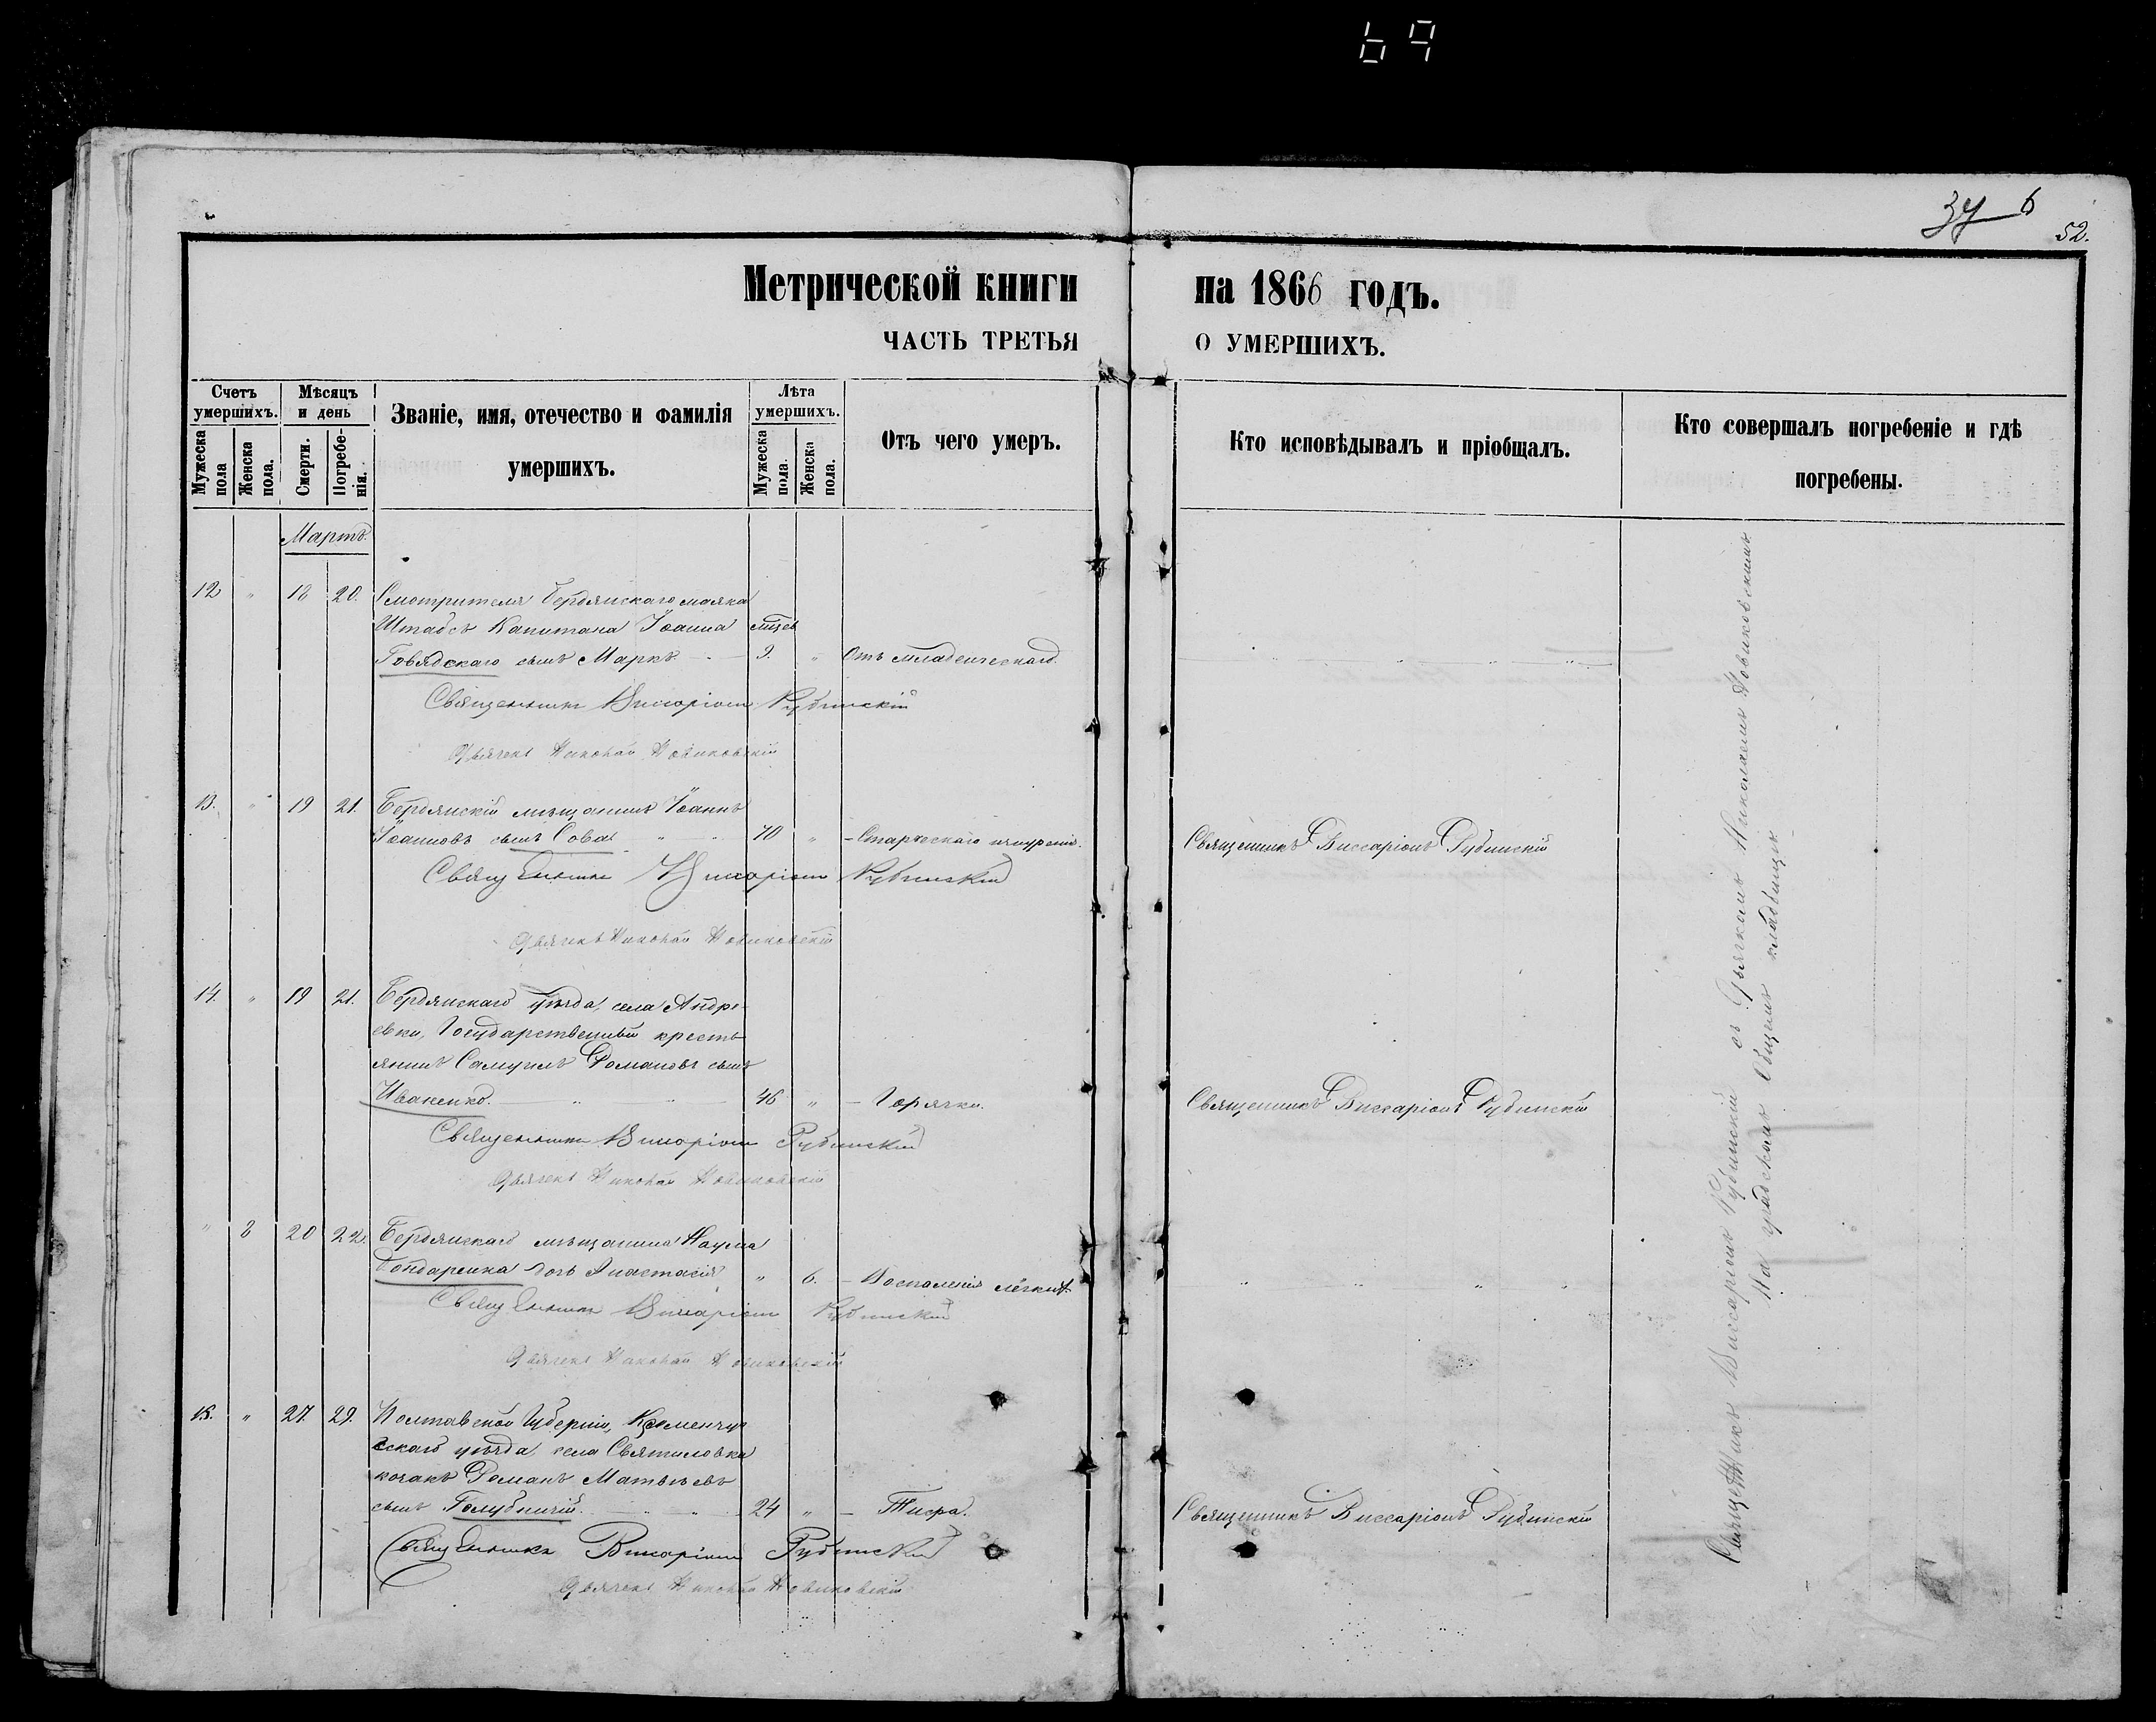 69
6
52.
Метрической книги на 1866 годъ.
ЧАСТЬ ТРЕТЬЯ О УМЕРШИХЪ.
Счетъ умершихъ.
Мужеска пола
Женска пола.
Мѣсяцъ и день
Смерти.
Погребенія.
Званіе, имя, отечество и фамилія
умершихъ.
Лѣта умершихъ.
Мужеска пола.
Женска пола.
Отъ чего умеръ.
Кто исповѣдывалъ и пріобщалъ.
Кто совершалъ погребеніе и гдѣ
погребены.
Мартъ.
12 " 18 20. Смотрителя Бердянскаго маяка
Штабсъ Капитана Іоанна мѣсяц
Говядскаго сынъ Маркъ. 9. " Отъ младенческаго.
Священникъ Виссаріонъ Рубинскій
Дьячекъ Николай Новиковскій
13. " 19 21. Бердянскій мѣщанинъ Іоаннъ
Іоанновъ сынъ Сова 70 " Старческаго изнуренія. Священникъ Виссаріонъ Рубинскій
Священникъ Виссаріонъ Рубинскій
Дьячекъ Николай Новиковскій
14. " 19 21. Бердянскаго уѣзда, села Андре-
евки, Государственный кресть-
янинъ Самуилъ Романовъ сынъ
Иваненко. 46 " Горячки. Священникъ Виссаріонъ Рубинскій
Священникъ Виссаріонъ Рубинскій
Дьячекъ Николай Новиковскій
" 8 20 22. Бердянскаго мѣщанина Наума
Бондаренка дочь Анастасія " 6. Воспаленія легкихъ
Священникъ Виссаріонъ Рубинскій
Дьячекъ Николай Новиковскій
15. " 27. 29. Полтавской Губерніи, Кременчуг-
скаго уѣзда села Святиловка
козакъ Романъ Матвѣевъ
сынъ Голубничій. 24 " Тифа. Священникъ Виссаріонъ Рубинскій
Священникъ Виссаріонъ Рубинскій
Дьячекъ Николай Новиковскій
Священникъ Виссаріонъ Рубинскій съ Дьячкомъ Николаемъ Новиковскимъ
На градскомъ общемъ кладбищѣ